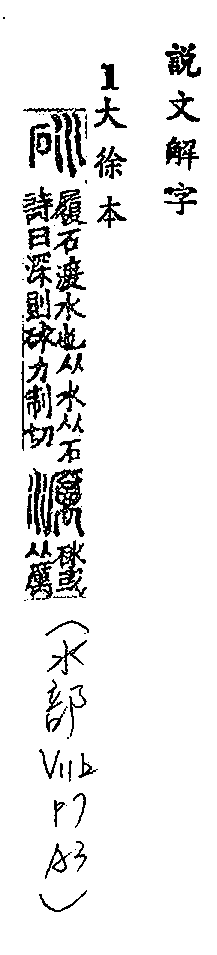 説文解字
1大徐本
砅
履石渡水也从水从石
詩曰深則砅力制切
濿
砅或
从厲
(水部 V11b p7 A3)